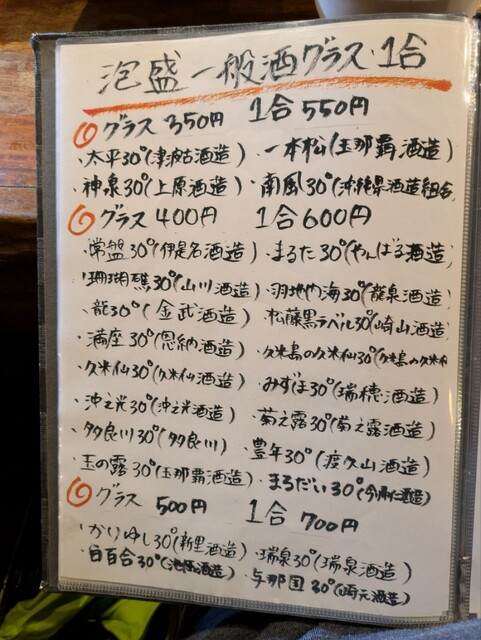 泡盛一般酒グラス・1合
グラス 350円 1合 550円
・太平30°(津波古酒造) ・一本松(玉那覇酒造)
・神泉30°(上原酒造) ・南風30°(沖縄県酒造組合
グラス 400円 1合 600円
・常盤30°(伊是名酒造) ・まるた30°(やんばる酒造)
・珊瑚礁30°(山川酒造) ・羽地内海30°(龍泉酒造)
・龍30°(金武酒造) ・松藤黒ラベル30°(崎山酒造)
・満座30°(恩納酒造) ・久米島の久米仙30°(久米島の久米仙
・久米仙30°(久米仙酒造) ・みずほ30°(瑞穂酒造)
・沖之光30°(沖之光酒造) ・菊之露30°(菊之露酒造)
・多良川30°(多良川) ・豊年30°(渡久山酒造)
・玉の露30°(玉那覇酒造) ・まるだい30°(今帰仁酒造)
グラス 500円 1合 700円
・かりゆし30°(新里酒造) ・瑞泉30°(瑞泉酒造)
・白百合30°(池原酒造) ・与那国30°(崎元酒造)